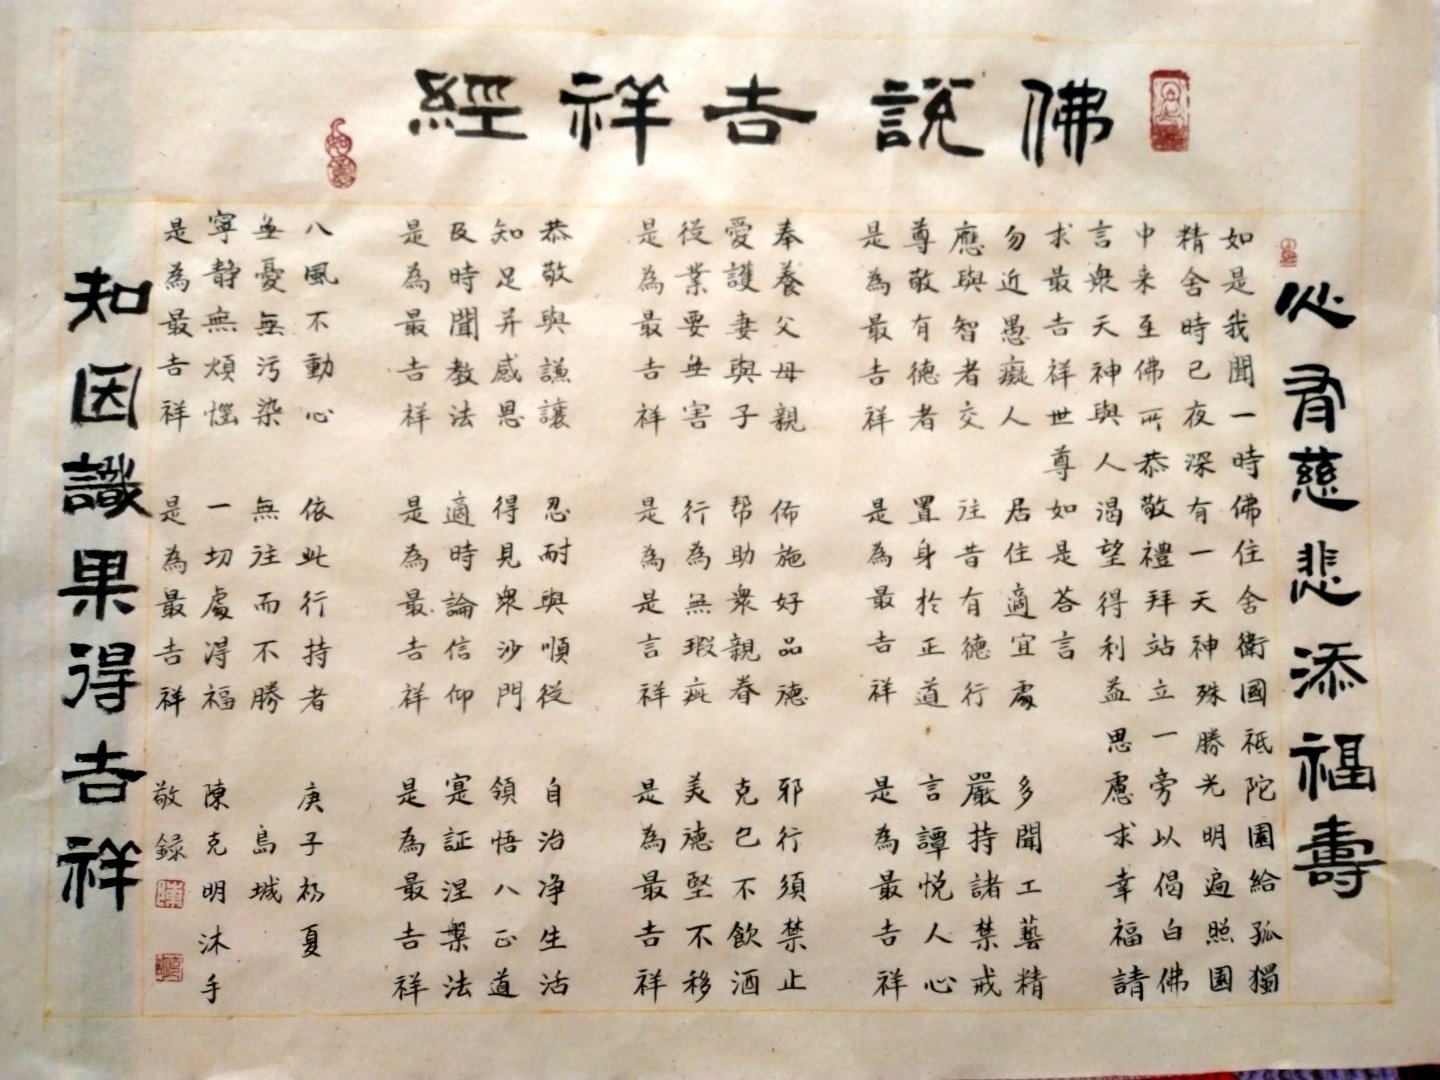 佛說吉祥經
心有慈悲添福壽
如是我聞一時佛住舍衛國祗陀園給孤獨
精舍時已夜深有一天神殊勝光明遍照園
中来至佛所恭敬禮拜站立一旁以偈白佛
言衆天神與人渴望得利益思慮求幸福請
求最吉祥世尊如是答言
勿近愚癡人
應與智者交
尊敬有德者
是為最吉祥
居住適宜處
往昔有德行
置身於正道
是為最吉祥
多聞工藝精
嚴持諸禁戒
言譚悦人心
是為最吉祥
奉養父母親
愛護妻與子
從業要無害
是為最吉祥
佈施好品德
帮助衆親眷
行為無瑕疵
是為是言祥
邪行須禁止
克己不飲酒
美德堅不移
是為最吉祥
恭敬與謙讓
知足并感恩
及時聞教法
是為最吉祥
忍耐與順從
得見衆沙門
適時論信仰
是為最吉祥
自治净生活
領悟八正道
寔証涅槃法
是為最吉祥
八風不動心
無憂無污染
寧静無煩惱
是為最吉祥
依此行持者
無往而不勝
一切處得福
是為最吉祥
庚子初夏
島城
陳克明沐手
敬録
知因識果得吉祥